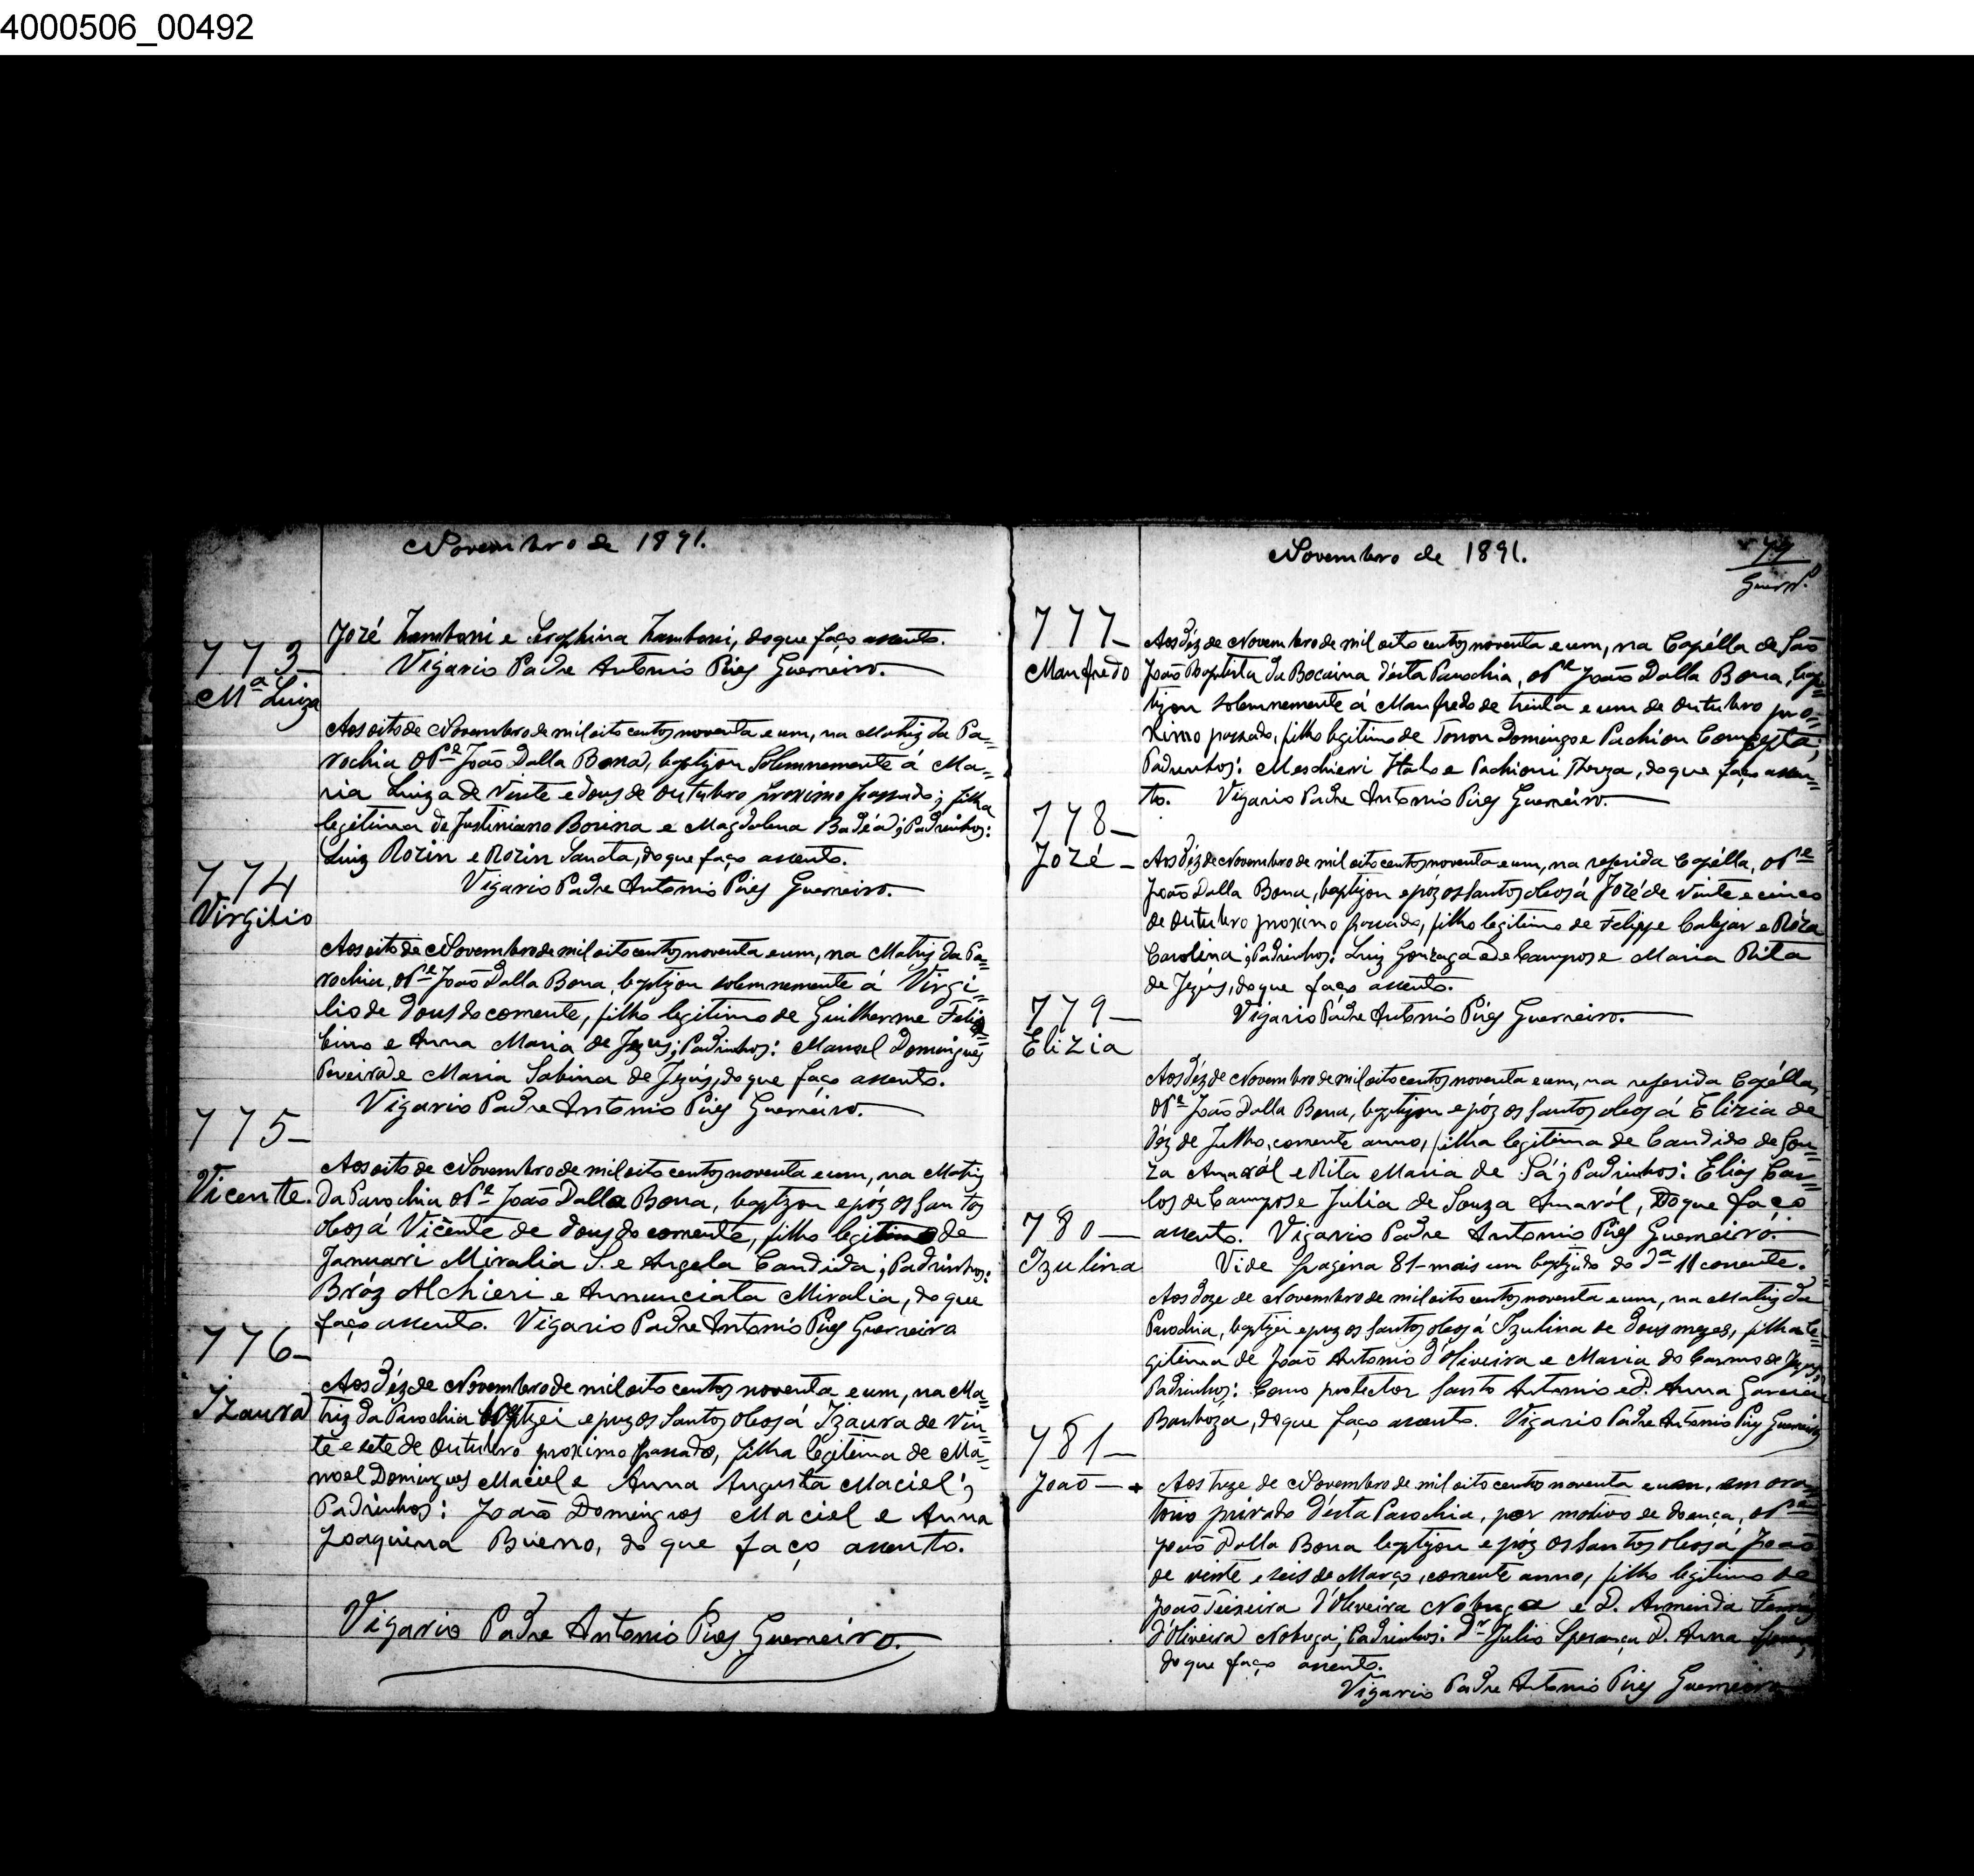 4000506_00492
Novembro de 1891.
Jozé Zamboni e Seraphina Zamboni, do que faço assento.
Vigario Padre Antonio Pires Guerreiro.
773
Mª Luiza
Aos oito de Novembro de mil oito centos noventa e um, na Matriz da Pa=
rochia o Pe João Dalla Bona, baptizou Solemnemente á Ma=
ria Luiza de vinte e dous de Outubro proximo passado; filha
legitima de Justiniano Borina e Magdalena Badéa; Padrinhos:
Luiz Rozin e Rozin Sancta, do que faço assento.
Vigario Padre Antonio Pires Guerreiro.
774
Virgilio
Aos oito de Novembro de mil oito centos noventa e um, na Matriz da Pa=
rochia, o Pe João Dalla Bona, baptizou solemnemente á Virgi=
lio de dous do corrente, filho legitimo de Guilherme Feliz=
bino e Anna Maria de Jezus; Padrinhos: Manoel Domingues
Pereira e Maria Sabina de Jezús, do que faço assento.
Vigario Padre Antonio Pires Guerreiro.
775
Vicente
Aos oito de Novembro de mil oito centos noventa e um, na Matriz
da Parochia o Pe João Dalla Bona, baptizou e poz os Santos
oleos á Vicente de dous do corrente, filho legitimo de
Januari Miralia S. e Angela Candida; Padrinhos:
Bróz Alchieri e Annunciata Miralia, do que
faço assento. Vigario Padre Antonio Pires Guerreiro
776
Izaura
Aos déz de Novembro de mil oito centos noventa e um, na Ma=
triz da Parochia baptizei e puz os Santos oleos á Izaura de vin=
te e sete de Outubro proximo passado, filha legitima de Ma=
noel Domingues Maciel e Anna Augusta Maciel;
Padrinhos: João Domingues Maciel e Anna
Joaquina Bueno, do que faço assento.
Vigario Padre Antonio Pires Guerreiro.
Novembro de 1891.
79
Guerro.
777
Manfredo
Aos déz de Novembro de mil oito centos noventa e um, na Capélla de São
João Baptista da Bocaina désta Parochia, o Pe João Dalla Bona, bap=
tizou solemnemente á Manfredo de trinta e um de Outubro pro=
ximo passado, filho legitimo de Torron Domingo e Pachion
Padrinhos: Meschieri Italo e Pachioni Thereza, do que faço assen=
to. Vigario Padre Antonio Pires Guerreiro.
778
Jozé
Aos déz de Novembro de mil oito centos noventa e um, na referida Capélla, o Pe
João Dalla Bona, baptizou e póz os Santos oleos á Jozé de vinte e cinco
de Outubro proximo passado, filho legitimo de Felippe Calejar e Róza
Carolina; Padrinhos: Luiz Gonzaga de Campos e Maria Rita
de Jezús, do que faço assento.
Vigario Padre Antonio Pires Guerreiro.
779
Elizia
Aos déz de Novembro de mil oito centos noventa e um, na referida Capélla,
o Pe João Dalla Bona, baptizou e póz os Santos oleos á Elizia de
déz de Julho, corrente anno, filha legitima de Candido de Sou=
za Amaról e Rita Maria de Sá; Padrinhos: Elias Car=
los de Campos e Julia de Souza Amaról, Do que faço
assento. Vigario Padre Antonio Pires Guerreiro.
Vide pagina 81 - mais um baptizado do da 11 corrente.
780
Izulina
Aos doze de Novembro de mil oito centos noventa e um, na Matriz da
Parochia, baptizei e puz os Santos oleos á Izulina de dous mezes, filha le=
gitima de João Antonio d'Oliveira e Maria do Carmo de Jezus,
Padrinhos: Como protector Santo Antonio e D. Anna Garcia
Barboza, do que faço assento. Vigario Padre Antonio Pires Guerreiro
781
João
Aos treze de Novembro de mil oito cento noventa e um, em ora=
torio privado désta Parochia, por motivo de doença, o Pe
João Dalla Bona baptizou e póz os Santos oleos á João
de vinte e seis de Março, corrente anno, filho legitimo de
João Teixeira d'Oliveira Nobrega e D. Armenda
d'Oliveira Nobrega; Padrinhos: Dr Julio Sperança D. Anna
do que faço assento.
Vigario Padre Antonio Pires Guerreiro